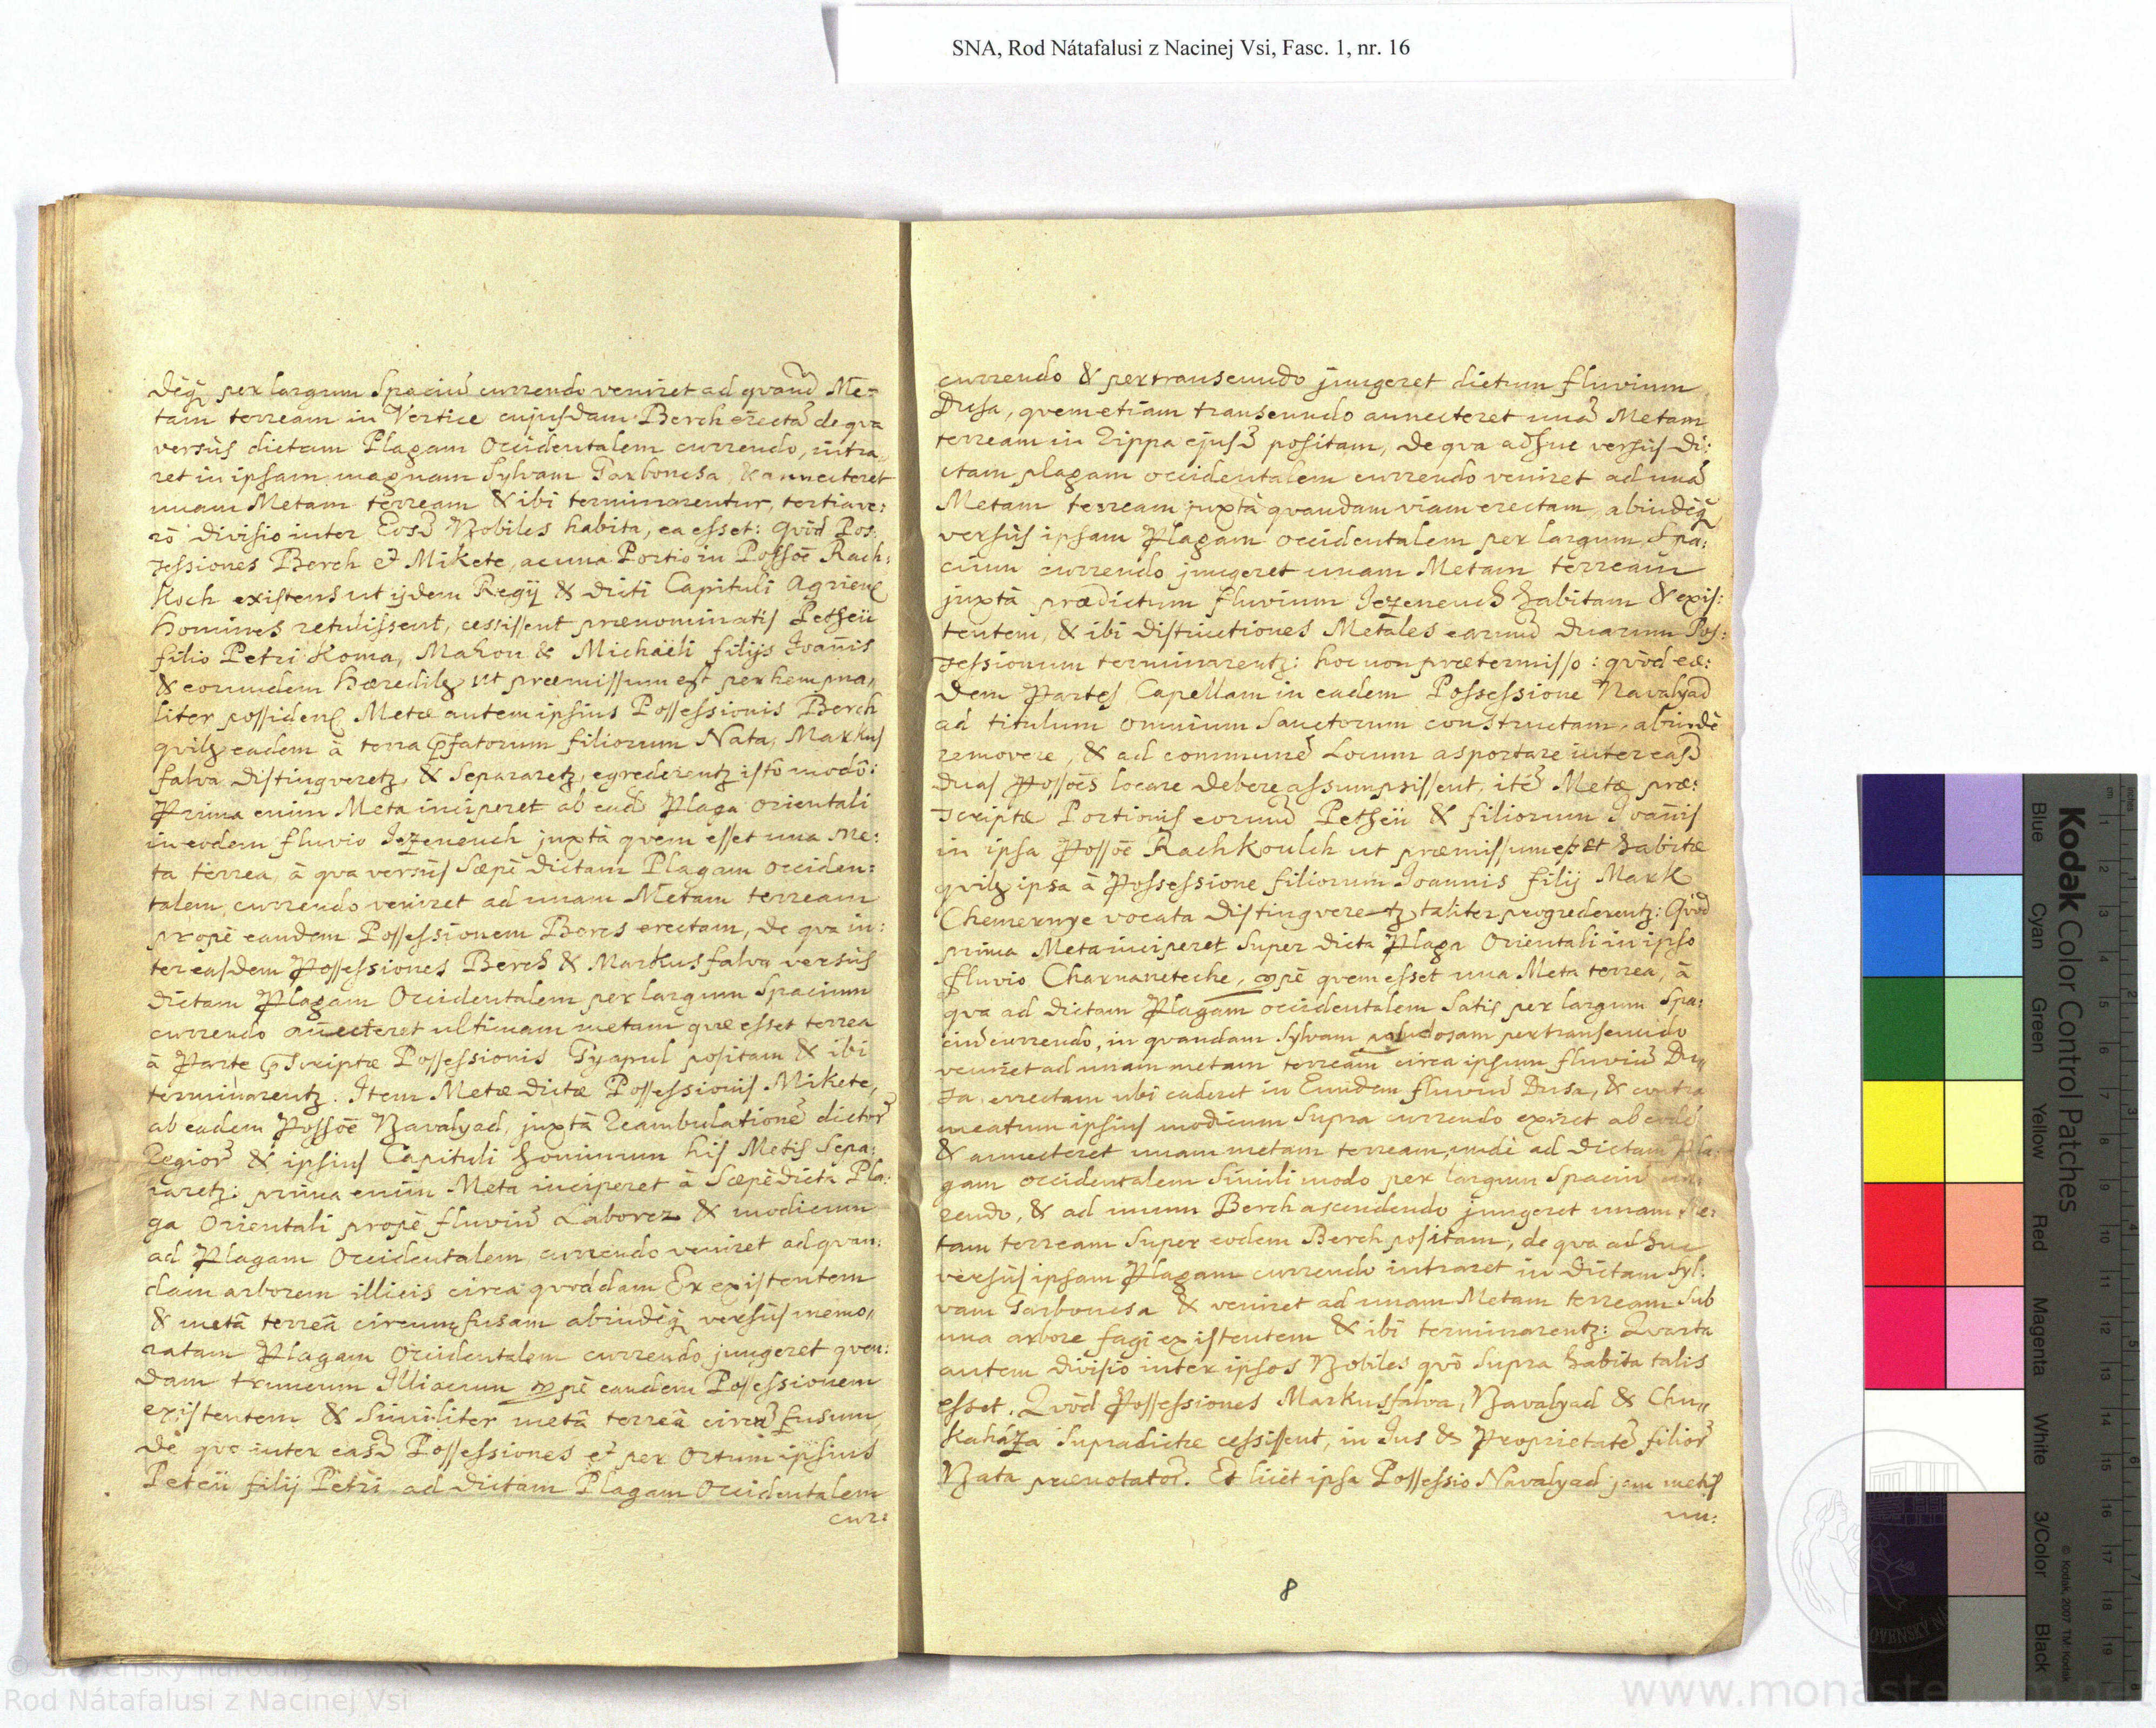 SNA, Rod Nátafalusi z Nacinej Vsi, Fasc. 1, nr. 16
deq; per largum Spaciũ currendo veniret ad qvandã Me-
tam terream in Vertice cujusdam Berch erectã de qva
versùs dictam Plagam Occidentalem currendo, intra„
ret in ipsam magnam Sylvam Tarboncsa, & annecteret
unam Metam terream & ibi terminarentur, tertia ve:
rò divisio inter Eosd Nobiles habita, ea esset: Qvòd Pos:
sessiones Berch et Mikete, ac una Portio in Possoẽ Rach:
Koch existens ut ijdem Regij & dicti Capituli Agrien
homines retulissent, cessissent prænominatis Petheü
filio Petri Koma, Mahou & Michaëli filijs Ioañis
& eorundem hæredibg ut præmissum est perhempna„
liter possiden Metæ autem ipsius Possessionis Berch
qvibg eadem à terra pfatorum filiorum Nata, Markus
falva distingveretz, & Separaretz, egrederentz isto modô:
Prima enim Meta inciperet ab eadẽ Plaga orientali
in eodem fluvio Jezeneuch juxtà qvem esset una Me:
ta terrea, à qva versùs Sæpè dictam Plagam occiden:
talem, currendo veniret ad unam Metam terream
propè eandem Possessionem Bercs erectam, de qva in:
ter easdem Possessiones Berch & Markusfalva versùs
dictam Plagam Occidentalem per largum Spacium
currendo añecteret ultimam metam quæ esset terrea
à Parte pscriptæ Possessionis Tyapul positam & ibi
terminarentz. Item Metæ dictæ Possessionis Mikete,
ab eadem Possoẽ Navalyad, juxtà Reambulationẽ dictor
Regior & ipsius Capituli hominum his Metis Sepa:
raretz: prima enim Meta inciperet à Sæpèdicta Pla:
ga Orientali propè fluviũ Laborcz & modicum
ad Plagam Occidentalem currendo veniret ad qvan:
dam arborem illicis circa qvoddam Er existentem
& metã terreã circumfusam abindèq; versùs memo„
ratam Plagam Occidentalem currendo jungeret qven:
dam truncum Illicium ppè eandem Possessionem
existentem & Similiter metâ terreâ circũfusum,
de qvo inter easd Possessiones et per Ortum ipsius
Peteü filij Petri ad dictam Plagam Occidentalem
cur:
currendo & pertranseundo jungeret dictum fluvium
Dusa, qvem etiam transeundo annecteret unã Metam
terream in Rippa ejusd positam, de qva adhuc versùs di:
ctam plagam occidentalem currendo veniret ad unã
Metam terream juxtà qvandam viam erectam, abindèq;
versùs ipsam Plagam occidentalem per largum Spa:
cium currendo jungeret unam Metam terream
juxtà prædictum fluvium Jezeneuch habitam & exis:
tentem, & ibi distinctiones Metales earund duarum Pos:
sessionum terminarentz: hoc non prætermisso: qvòd eæ:
dem Partes Capellam in eadem Possessione Navalyad
ad titulum omnium Sanctorum constructam, abindè
removere, & ad communẽ Locum asportare inter easd
duas Possoẽs locare debere assumpsissent, itẽ Metæ præ:
scriptæ Portionis eorund Petheü & filiorum Ioañis
in ipsa Possoẽ Rachkoulch ut præmissum est habitæ
qvibg ipsa à Possessione filiorum Joannis filij Mark
Chemernye vocata distingverentz taliter progrederentz: Qvòd
prima Meta inciperet Super dicta Plaga Orientali in ipso
fluvio Charnaneteche, ppè qvem esset una Meta terrea, à
qva ad dictam Plagam occidentalem Satis per largum Spa:
ciũ currendo, in qvandam Sylvam paludosam pertranseundo
veniret ad unam metam terream circa ipsum fluviũ Du„
sa, errectam ubi caderet in Eundem fluviũ Dusa, & contra
meatum ipsius modicum Supra currendo exiret ab eodẽ
& annecteret unam metam terream, undè ad dictam Pla:
gam occidentalem Simili modo per largum Spaciũ cur:
rendo, & ad unum Berch ascendendo jungeret unam Me:
tam terream Super eodem Berch positam, de qva adhuc
versùs ipsam Plagam currendo intraret in dictam Syl:
vam Tarboncsa & veniret ad unam Metam terream Sub
una arbore fagi existentem & ibi terminarentz: Qvarta
autem divisio inter ipsos Nobiles qvò Supra habita talis
esset. Qvòd Possessiones Markusfalva, Navalyad & Chu„
Kaháza Supradictæ cessissent, in Jus & Proprietatẽ filior
Nata prænotator. Et licèt ipsa Possessio Navalyad jam metis
un:
8
Kodak Color Control Patches
Blue Cyan Green Yellow Red Magenta White 3/Color Black
© Kodak, 2007 TM: Kodak
Rod Nátafalusi z Nacinej Vsi